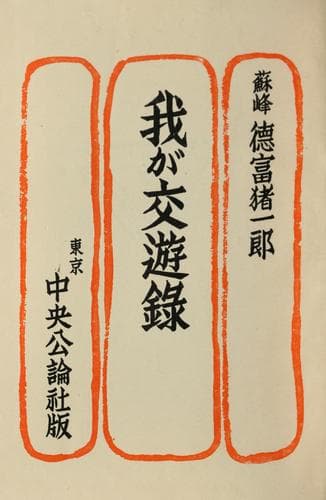 蘇峰 德富猪一郎
我が交遊錄
東京 中央公論社版